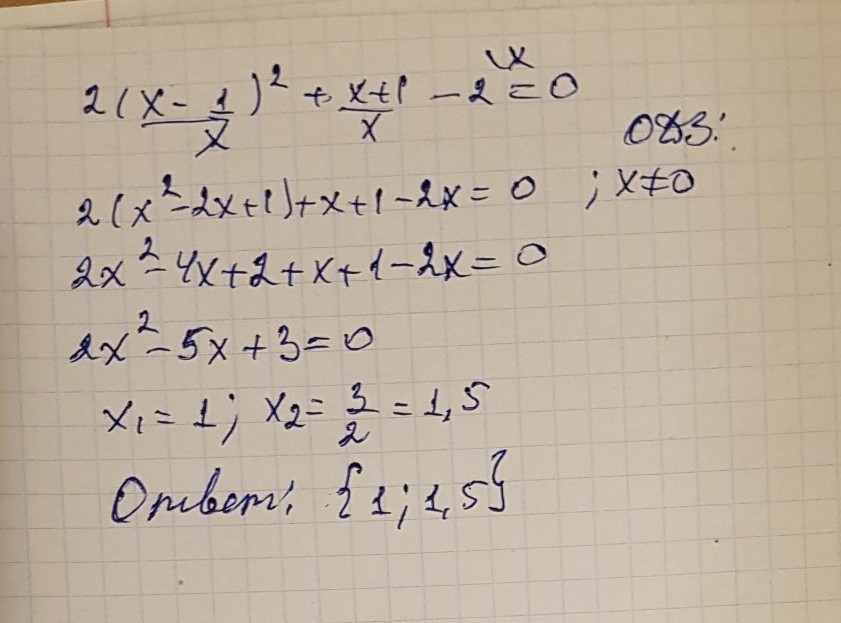 2(x - 1/x)² + x+1/x - 2 \x = 0
ОДЗ:
2(x²-2x+1)+x+1-2x = 0 ; x≠0
2x²-4x+2+x+1-2x = 0
2x²-5x+3=0
x₁=1; x₂=3/2=1,5
Ответ: {1;1,5}